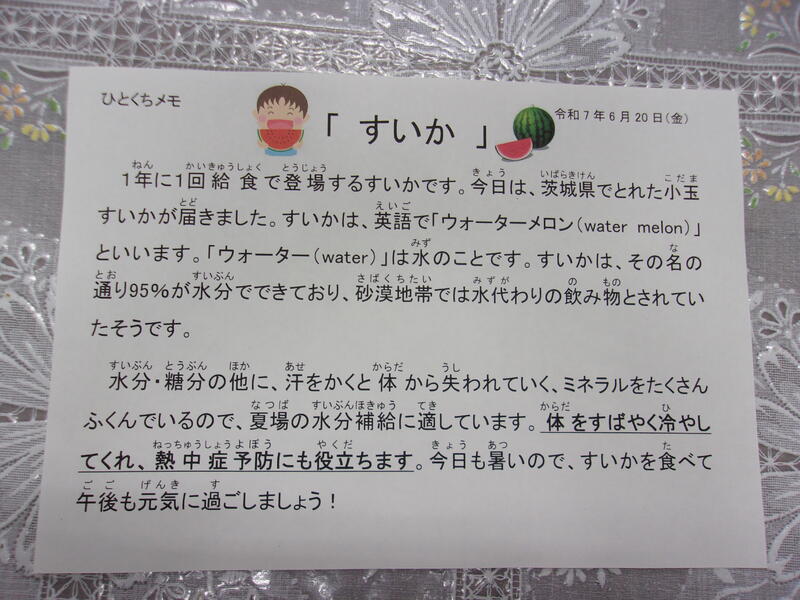 ひとくちメモ
「 すいか 」
令和7年6月20日(金)
1年に1回給食で登場するすいかです。今日は、茨城県でとれた小玉
すいかが届きました。すいかは、英語で「ウォーターメロン(water melon)」
といいます。「ウォーター(water)」は水のことです。すいかは、その名の
通り95%が水分でできており、砂漠地帯では水代わりの飲み物とされてい
たそうです。
水分・糖分の他に、汗をかくと体から失われていく、ミネラルをたくさん
ふくんでいるので、夏場の水分補給に適しています。体をすばやく冷やし
てくれ、熱中症予防にも役立ちます。今日も暑いので、すいかを食べて
午後も元気に過ごしましょう!